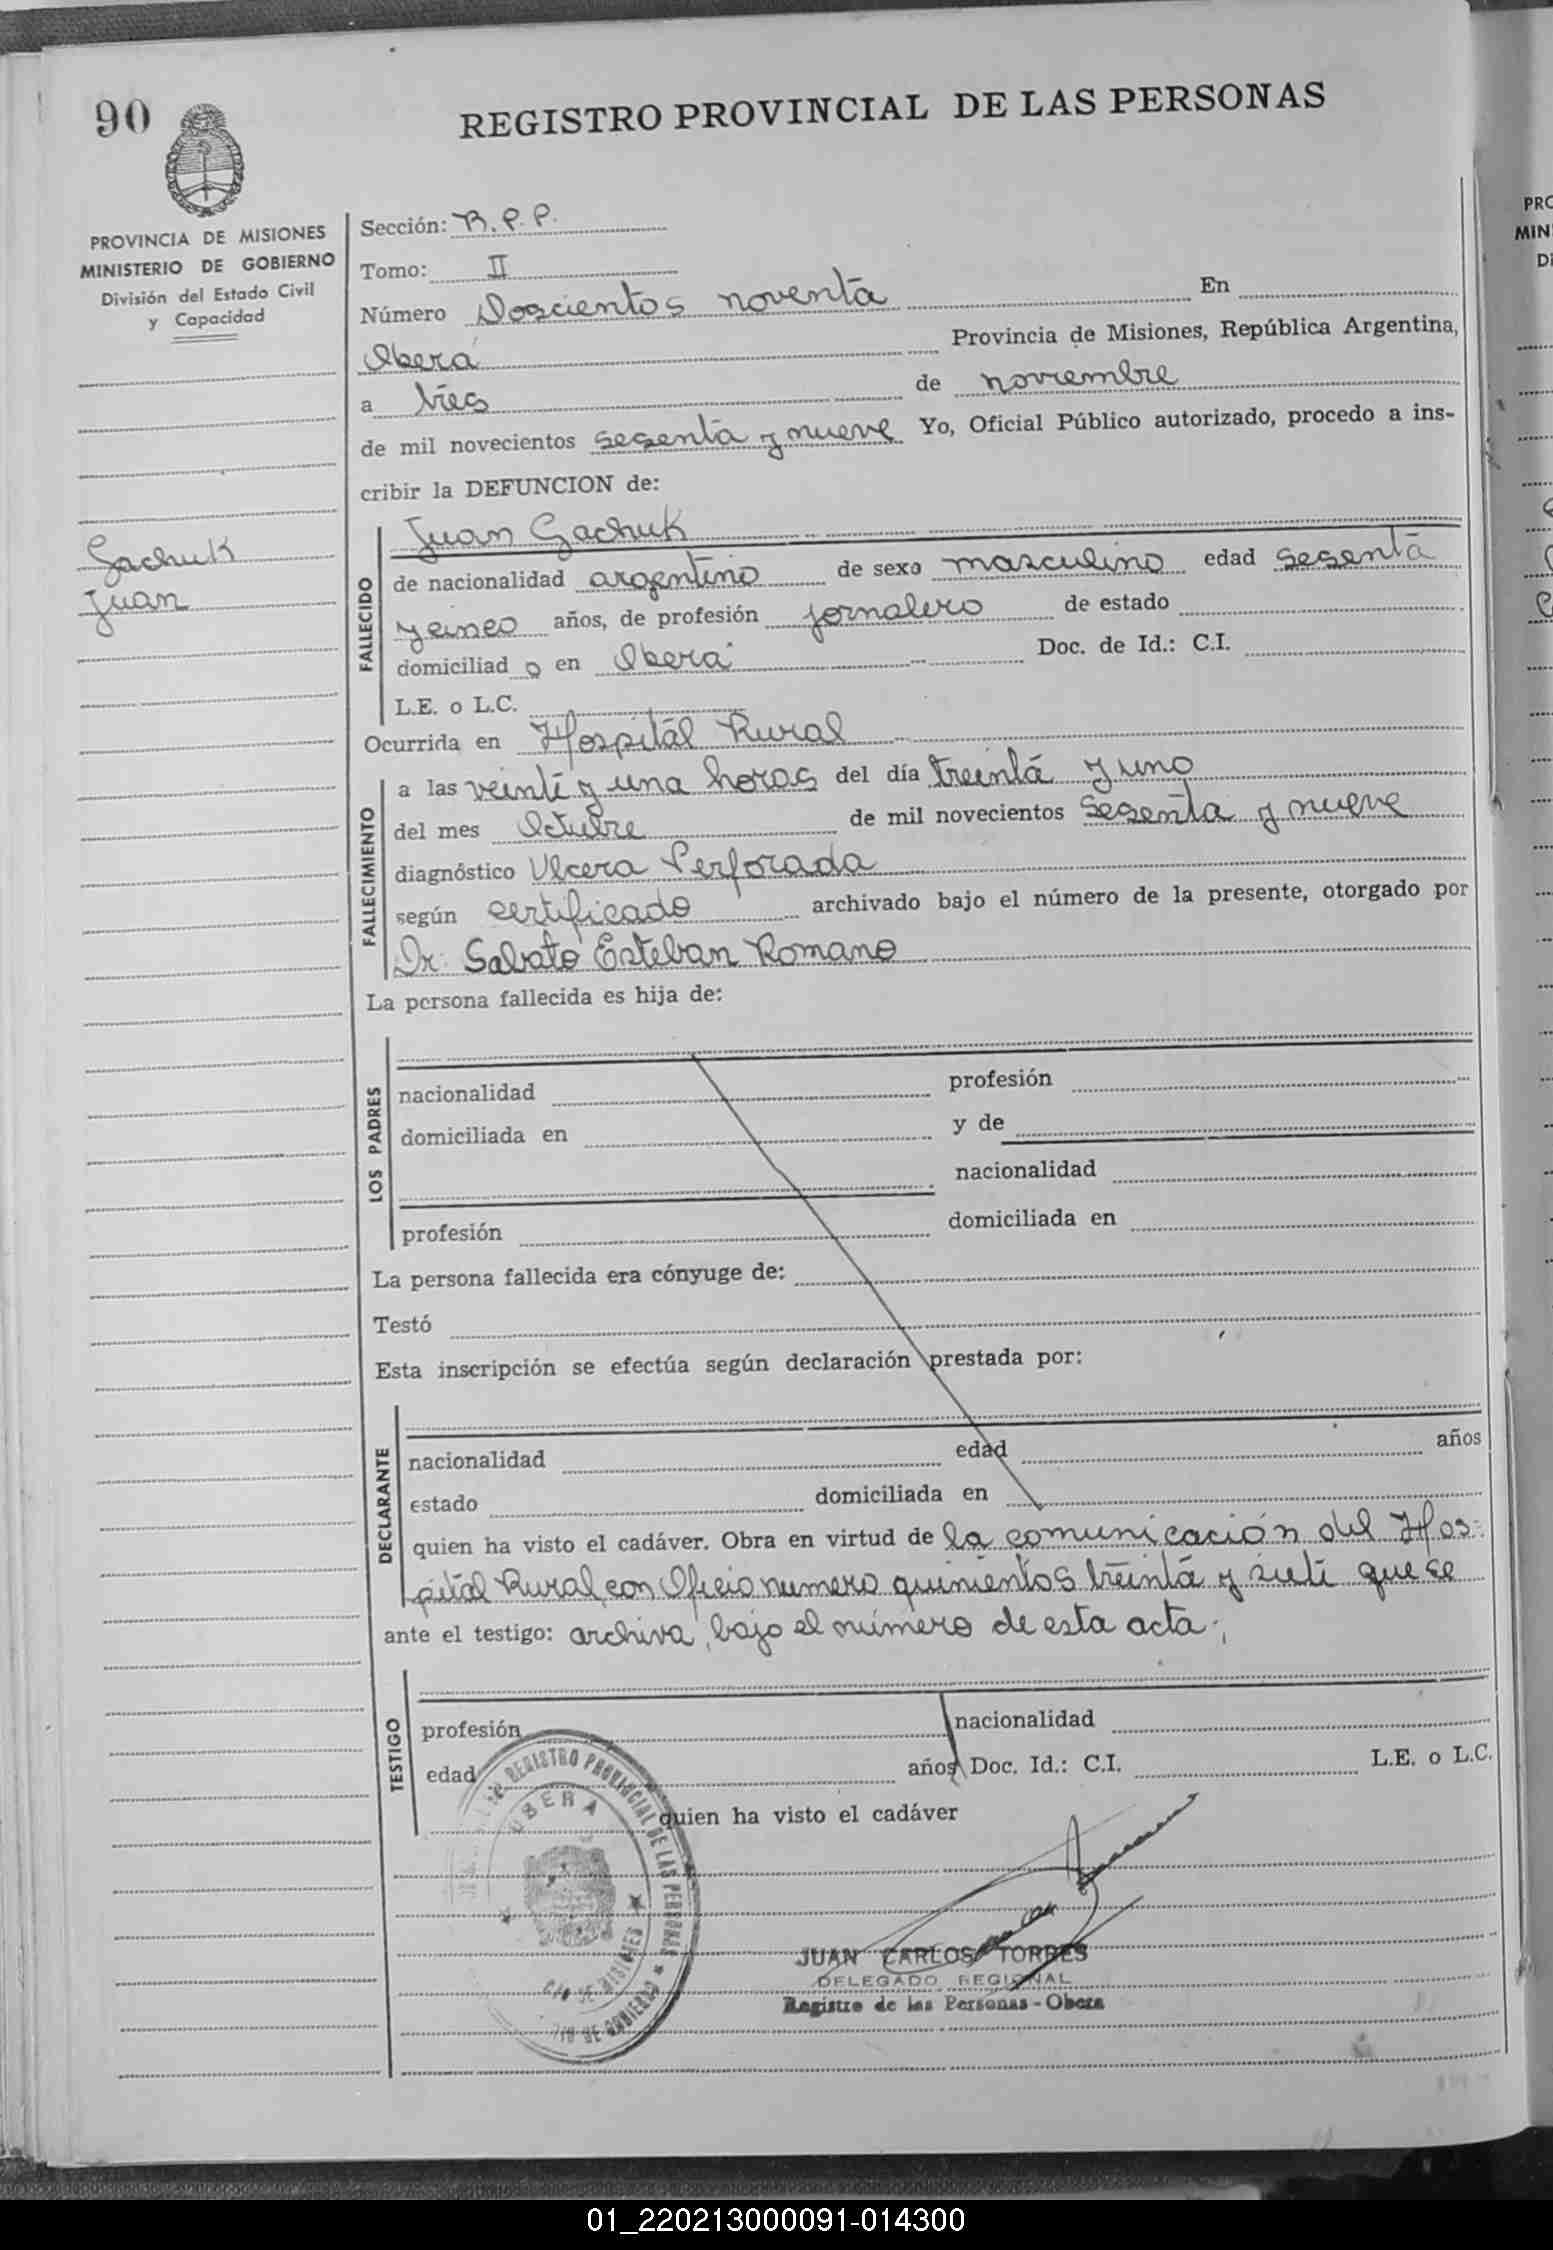 90
REGISTRO PROVINCIAL DE LAS PERSONAS
PROVINCIA DE MISIONES
MINISTERIO DE GOBIERNO
División del Estado Civil
y Capacidad
Gachuk
Juan
Sección: R.P.P.
Tomo: II
Número Doscientos noventa En
Oberá Provincia de Misiones, República Argentina,
a tres de noviembre
de mil novecientos sesenta y nueve Yo, Oficial Público autorizado, procedo a ins-
cribir la DEFUNCION de:
FALLECIDO
Juan Gachuk
de nacionalidad argentino de sexo masculino edad sesenta
y cinco años, de profesión jornalero de estado
domiciliad o en Oberá Doc. de Id.: C.I.
L.E. o L.C.
Ocurrida en Hospital Rural
FALLECIMIENTO
a las veinte y una horas del día treinta y uno
del mes Octubre de mil novecientos sesenta y nueve
diagnóstico Ulcera Perforada
según certificado archivado bajo el número de la presente, otorgado por
Dr. Sabato Esteban Romano
La persona fallecida es hija de:
LOS PADRES
nacionalidad profesión
domiciliada en y de
nacionalidad
profesión domiciliada en
La persona fallecida era cónyuge de:
Testó
Esta inscripción se efectúa según declaración prestada por:
DECLARANTE
nacionalidad edad años
estado domiciliada en
quien ha visto el cadáver. Obra en virtud de la comunicación del Hos-
pital Rural, con Oficio numero quinientos treinta y siete que se
ante el testigo: archiva, bajo el número de esta acta.
TESTIGO
profesión nacionalidad
edad años Doc. Id.: C.I. L.E. o L.C.
quien ha visto el cadáver
REGISTRO PROVINCIAL DE LAS PERSONAS
OBERA
MISIONES
JUAN CARLOS TORRES
DELEGADO REGIONAL
Registro de las Personas - Obera
PRO
MIN
Di
01_220213000091-014300